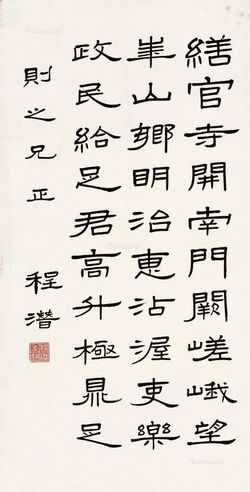 繕官寺開南門闕嵯峨望
華山鄉明治惠沾渥吏樂
政民給足君高升極鼎足
則之兄正 程潛